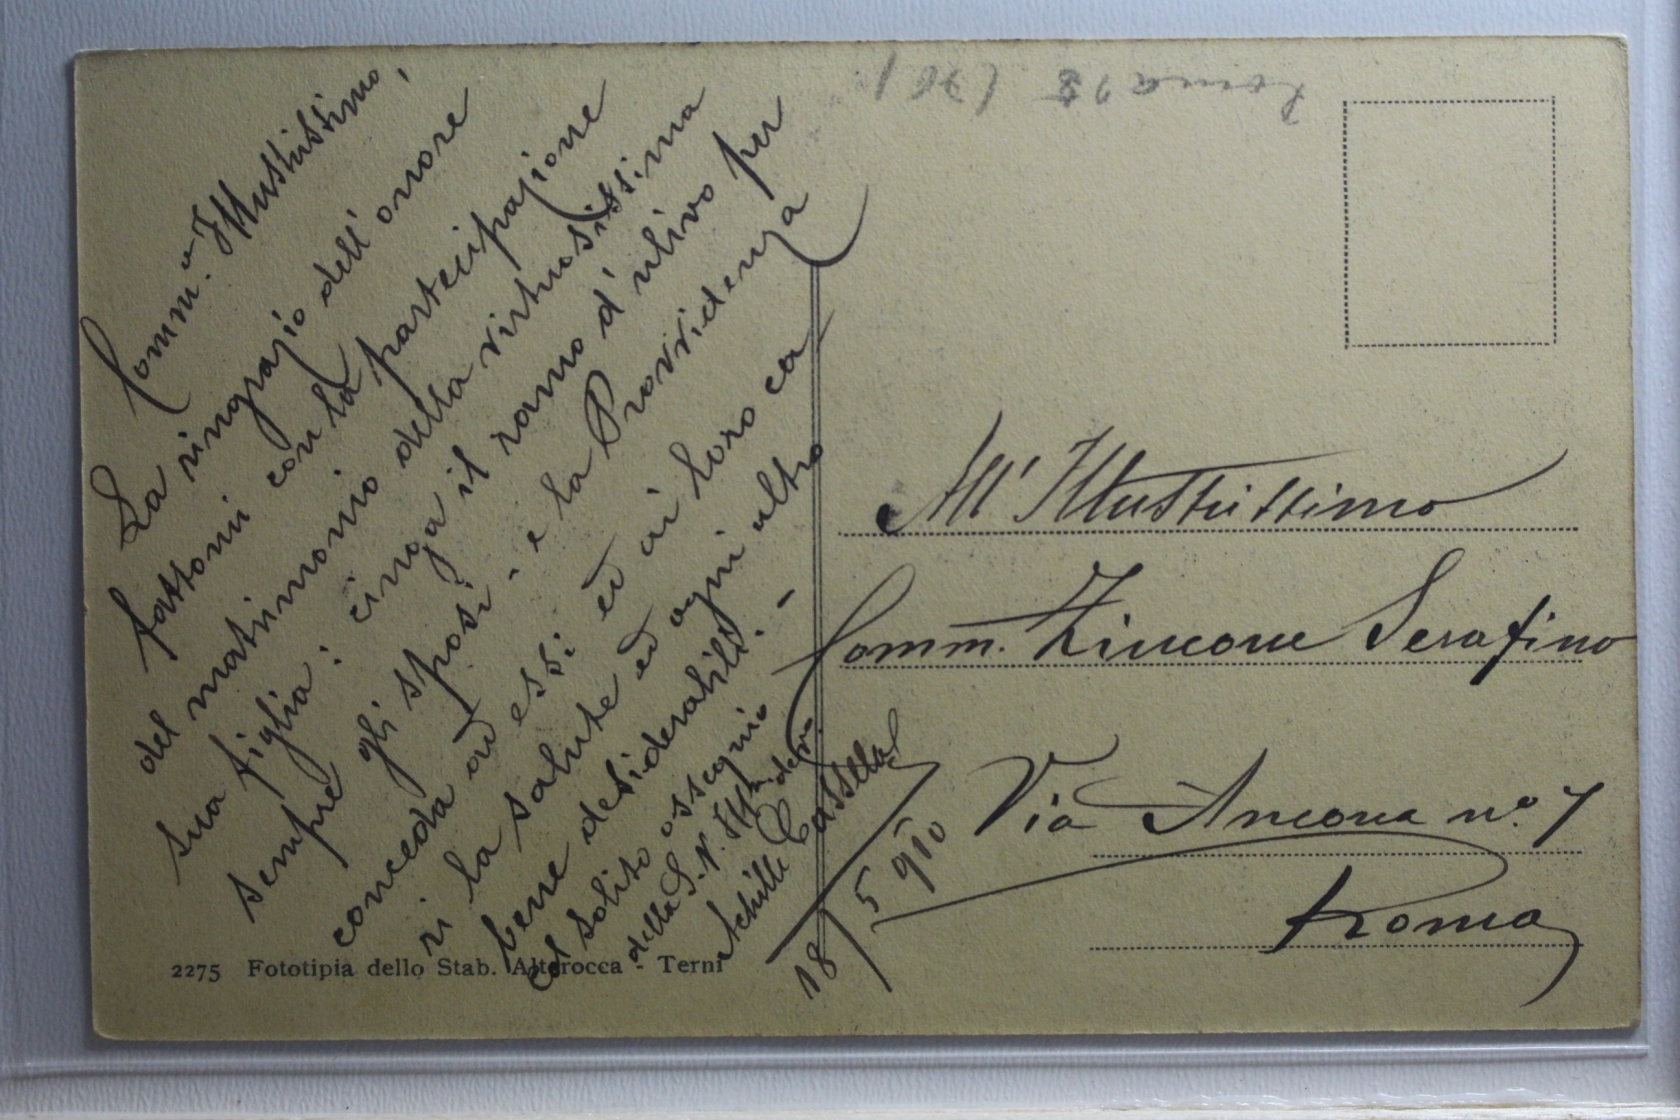 Comm.r Illustrissimo,
La ringrazio dell'onore
fattomi con la partecipazione
del matrimonio della virtuosissima
sua figlia: cinga il ramo d'ulivo per
sempre gli sposi - e la Provvidenza
conceda ad essi ed ai loro ca
ri la salute ed ogni altro
bene desiderabile. -
Col solito ossequio
della S. V. Ill.ma dev.
Achille Cassella
18/5 910
2275 Fototipia dello Stab. Alterocca - Terni
Roma 18
All'Illustrissimo
Comm. Zincone Serafino
Via Ancona n.o 7
Roma